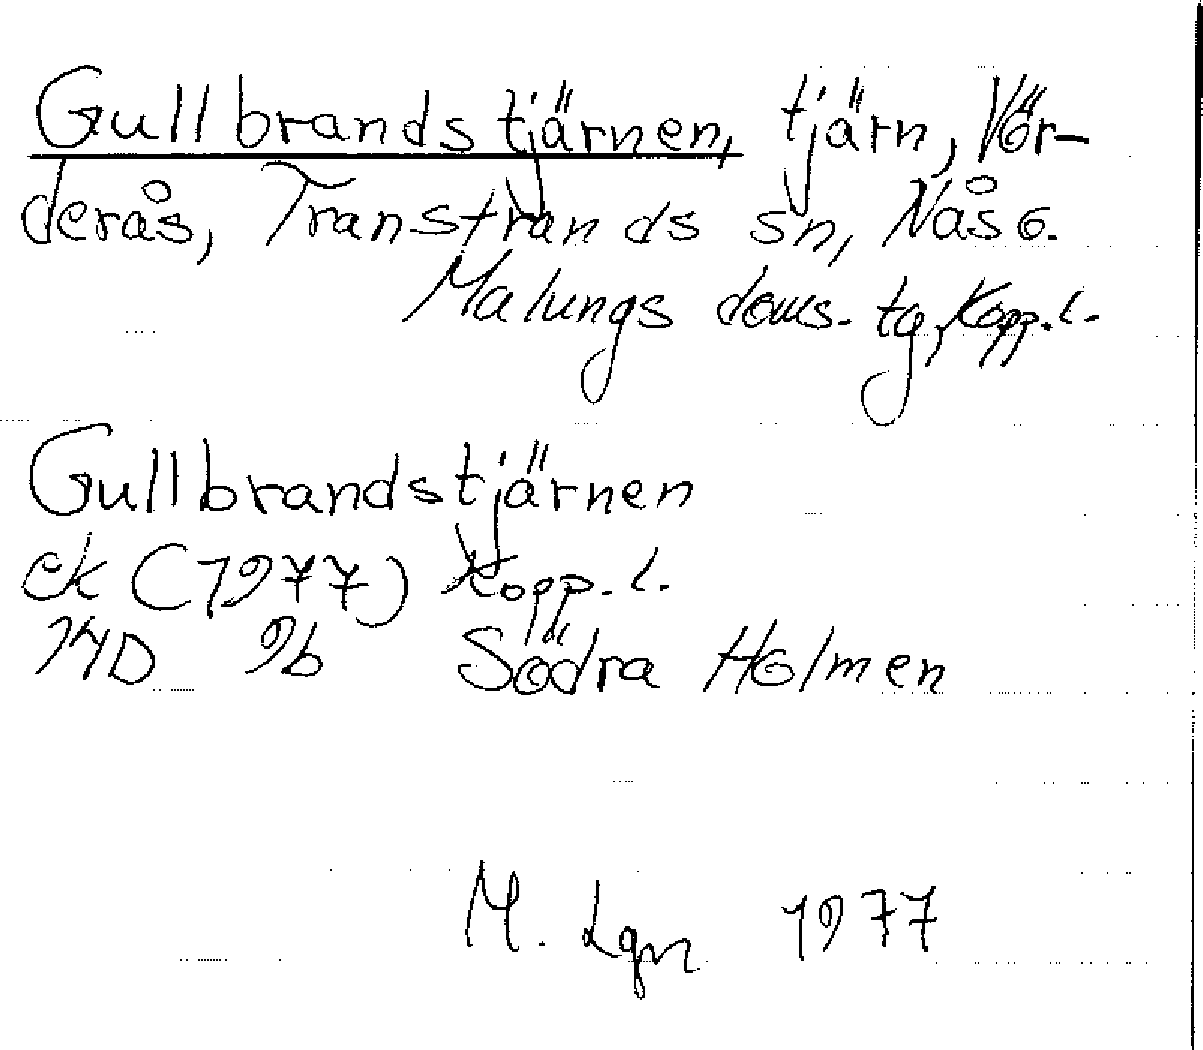 Gullbrandstjärnen, tjärn, Vör-
derås, Transtrands sn, Nås o.
Malungs doms. tg, Kopp. l.
Gullbrandstjärnen
ek (1977) Kopp. l.
14D 9b Södra Holmen
M. Lgn 1977